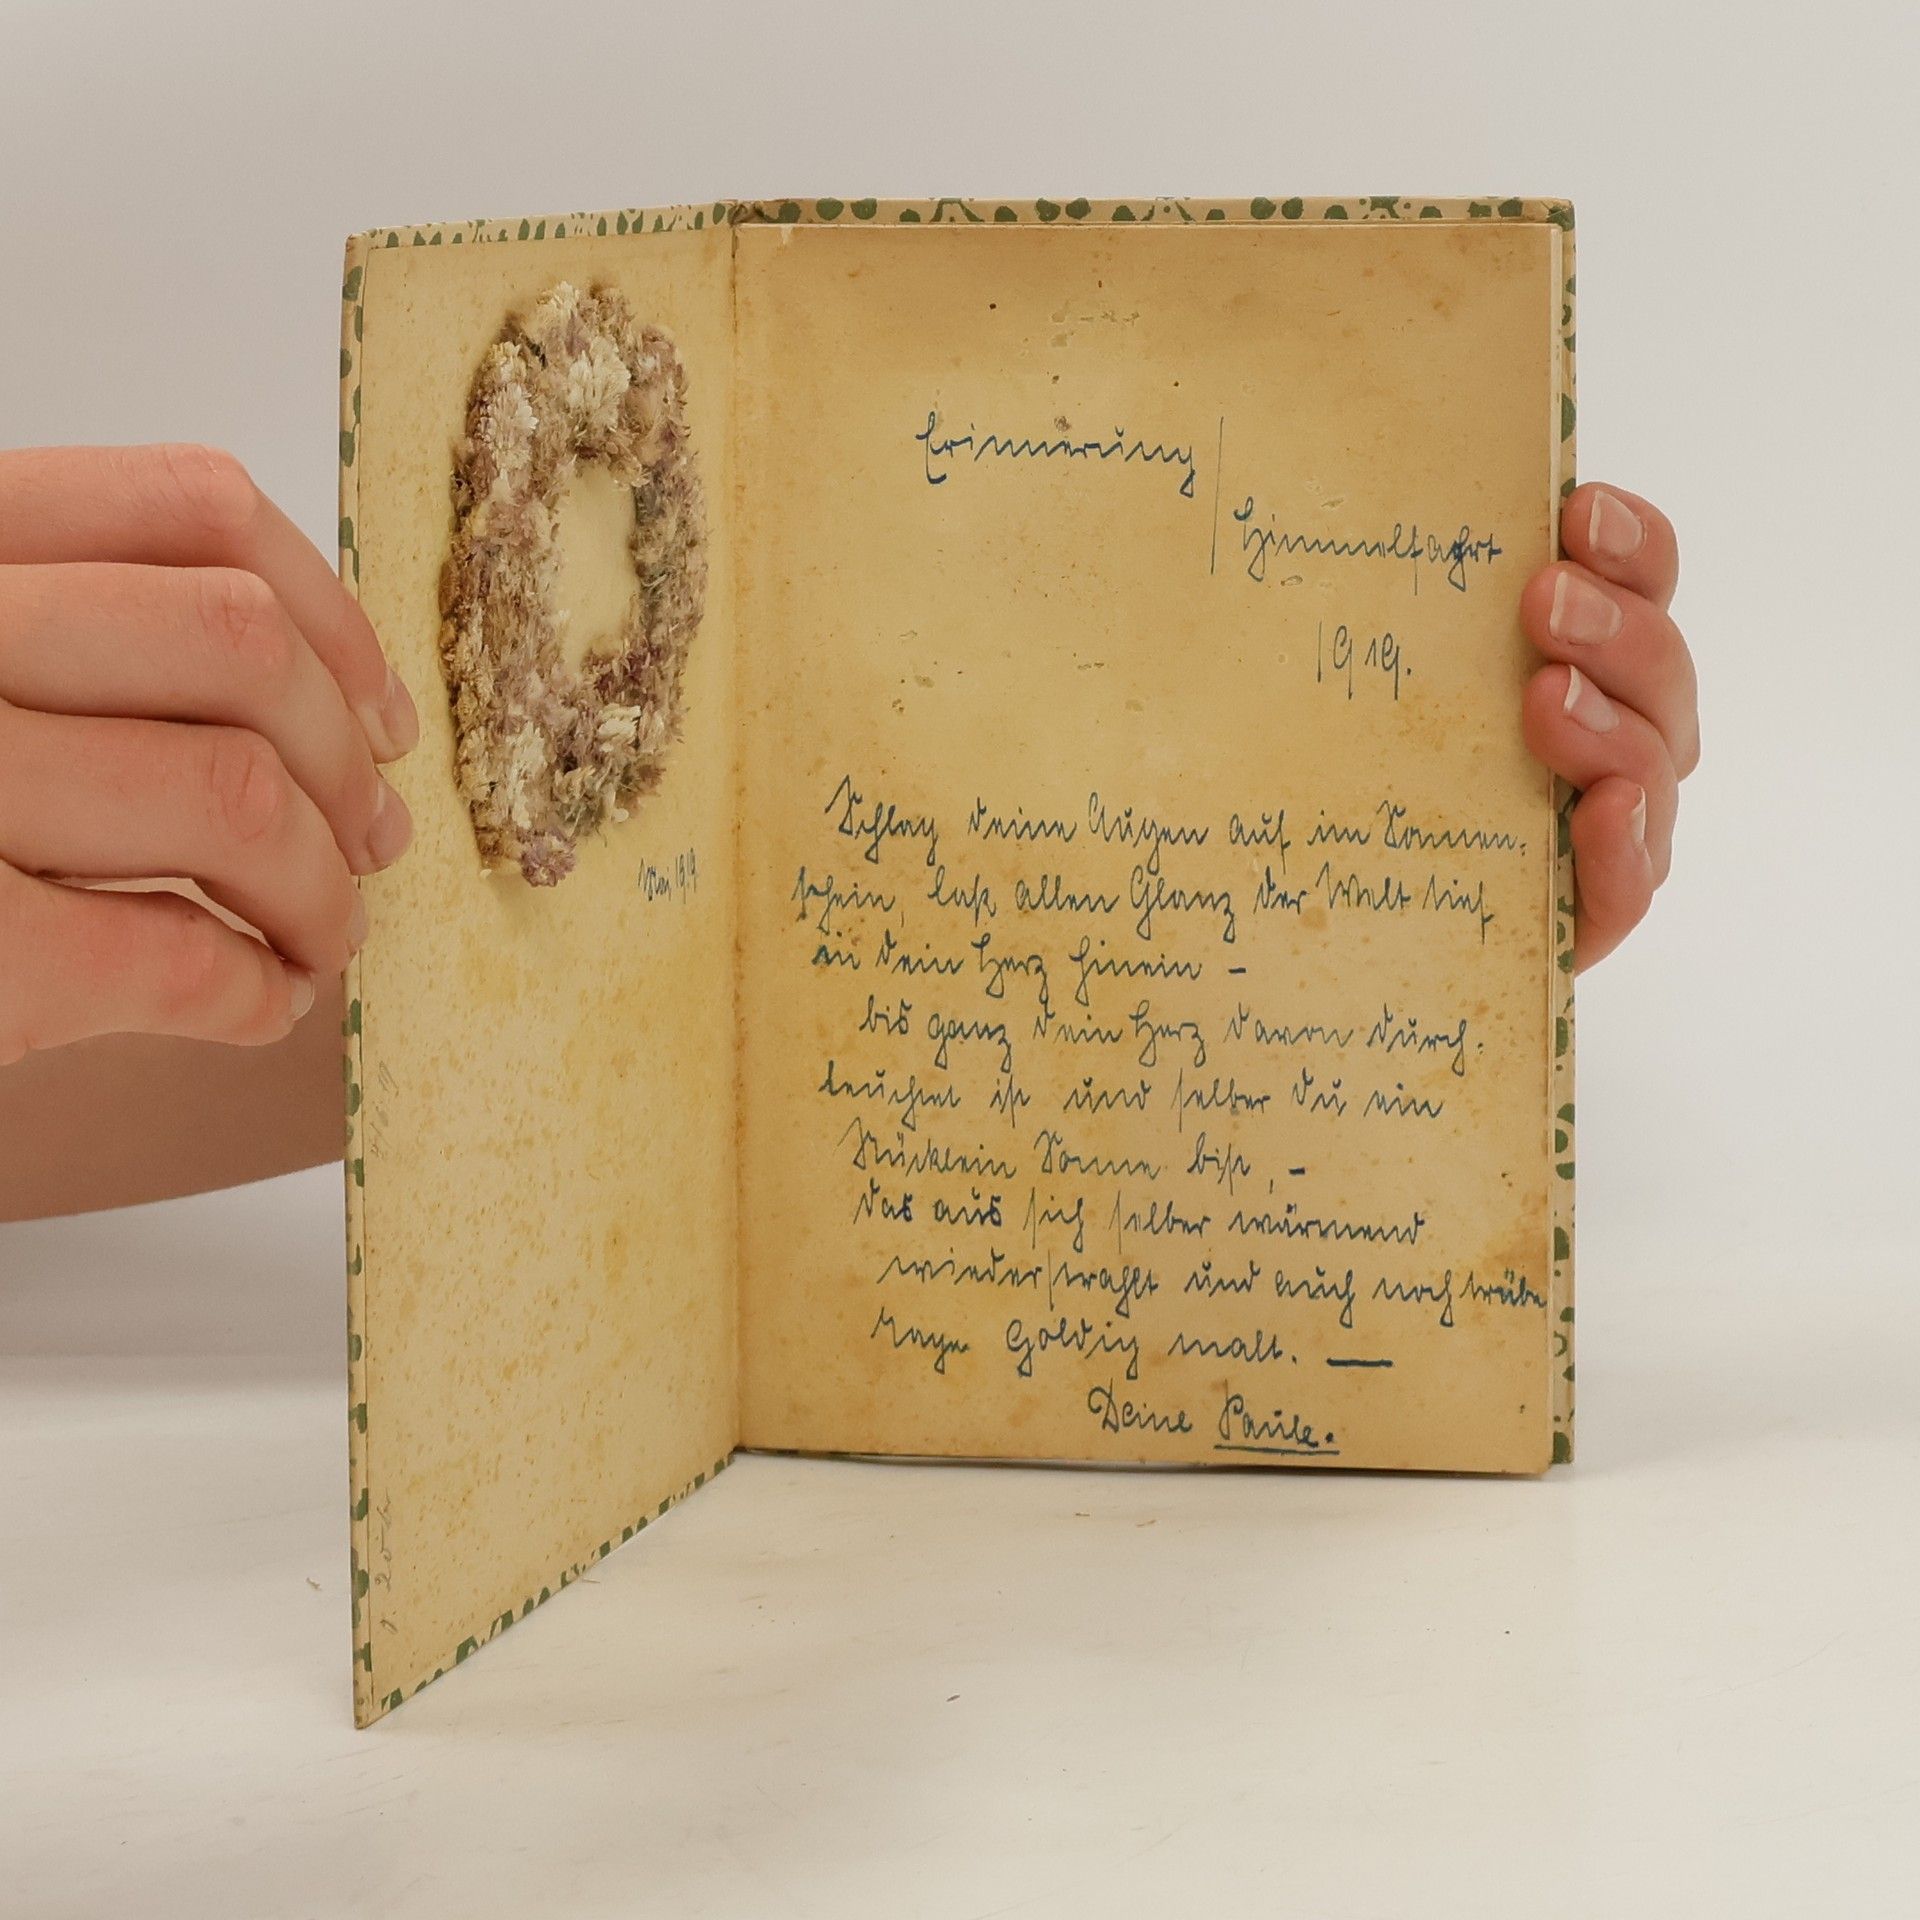 Mai 1919.
Erinnerung
Himmelfahrt
1919.
Schlag deine Augen auf im Sonnen-
schein, laß allen Glanz der Welt tief
in dein Herz hinein –
bis ganz dein Herz davon durch-
leuchtet ist und selber du ein
Stücklein Sonne bist, –
das aus sich selber wärmend
wiederstrahlt und auch noch trübe
Tage Goldig malt. —
Deine Paule.